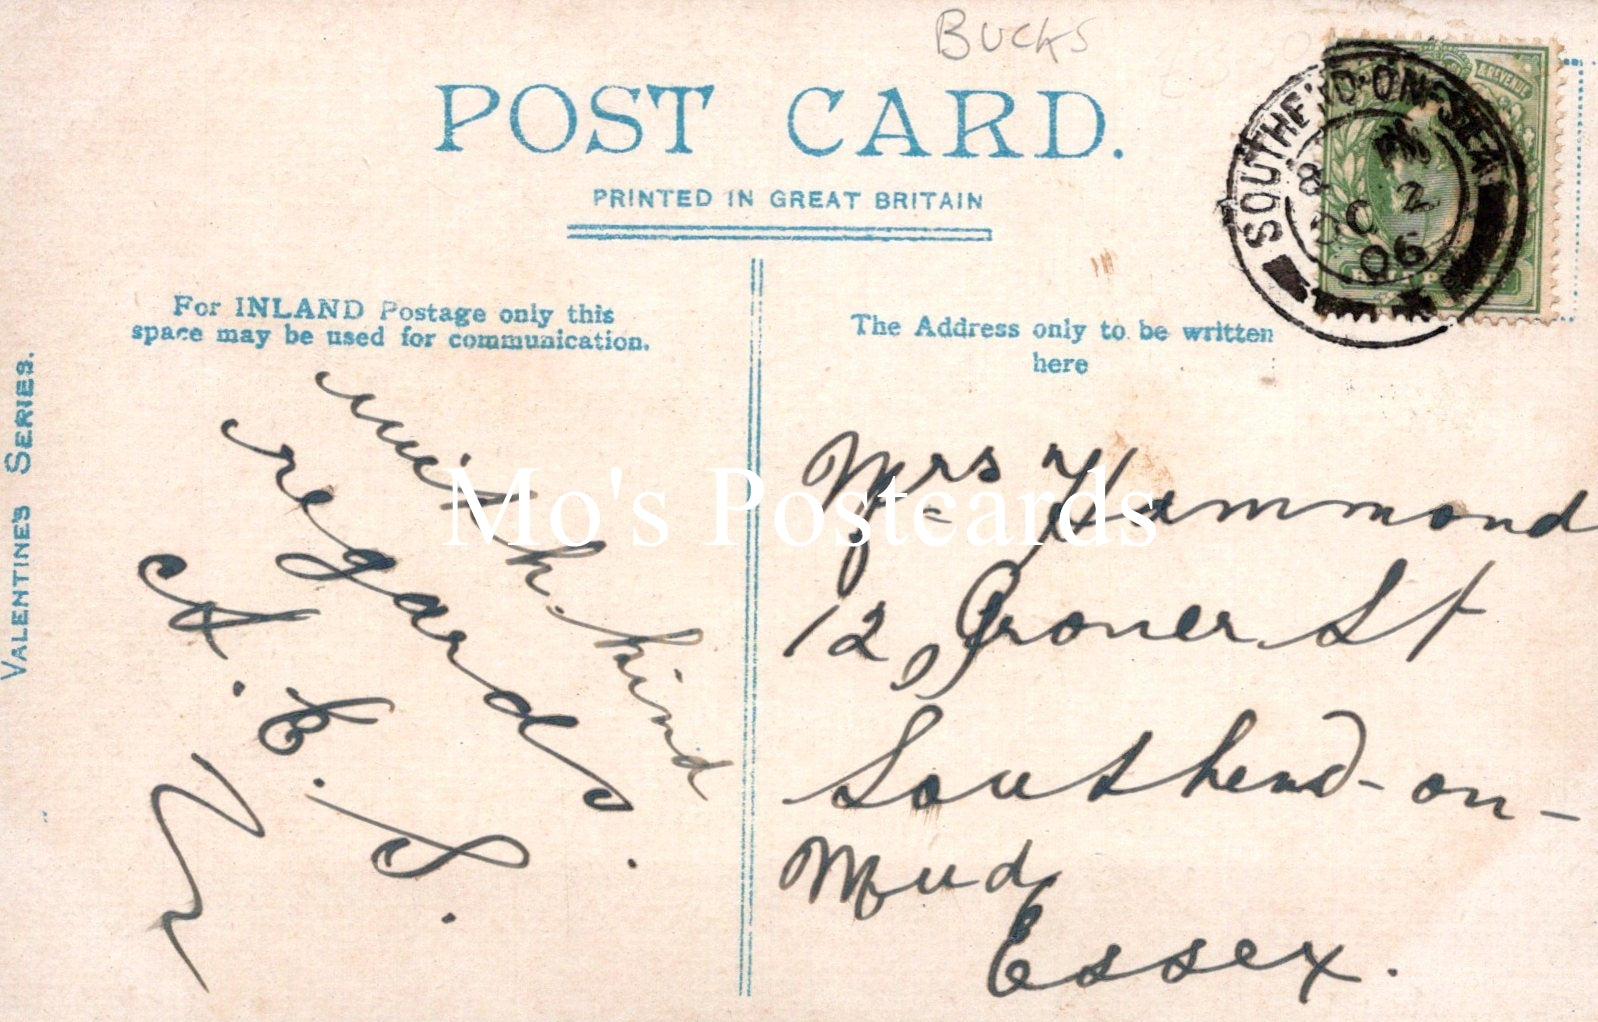 BUCKS
POST CARD.
PRINTED IN GREAT BRITAIN
For INLAND Postage only this
space may be used for communication.
The Address only to be written
here
VALENTINE'S SERIES.
SOUTHEND-ON-SEA
8 PM
OC 2
06
& REVENUE
with kind
regards.
A. E. S.
Mrs Hammond
12, Grover St
Southend-on-
Mud
Essex.
Mo's Postcards